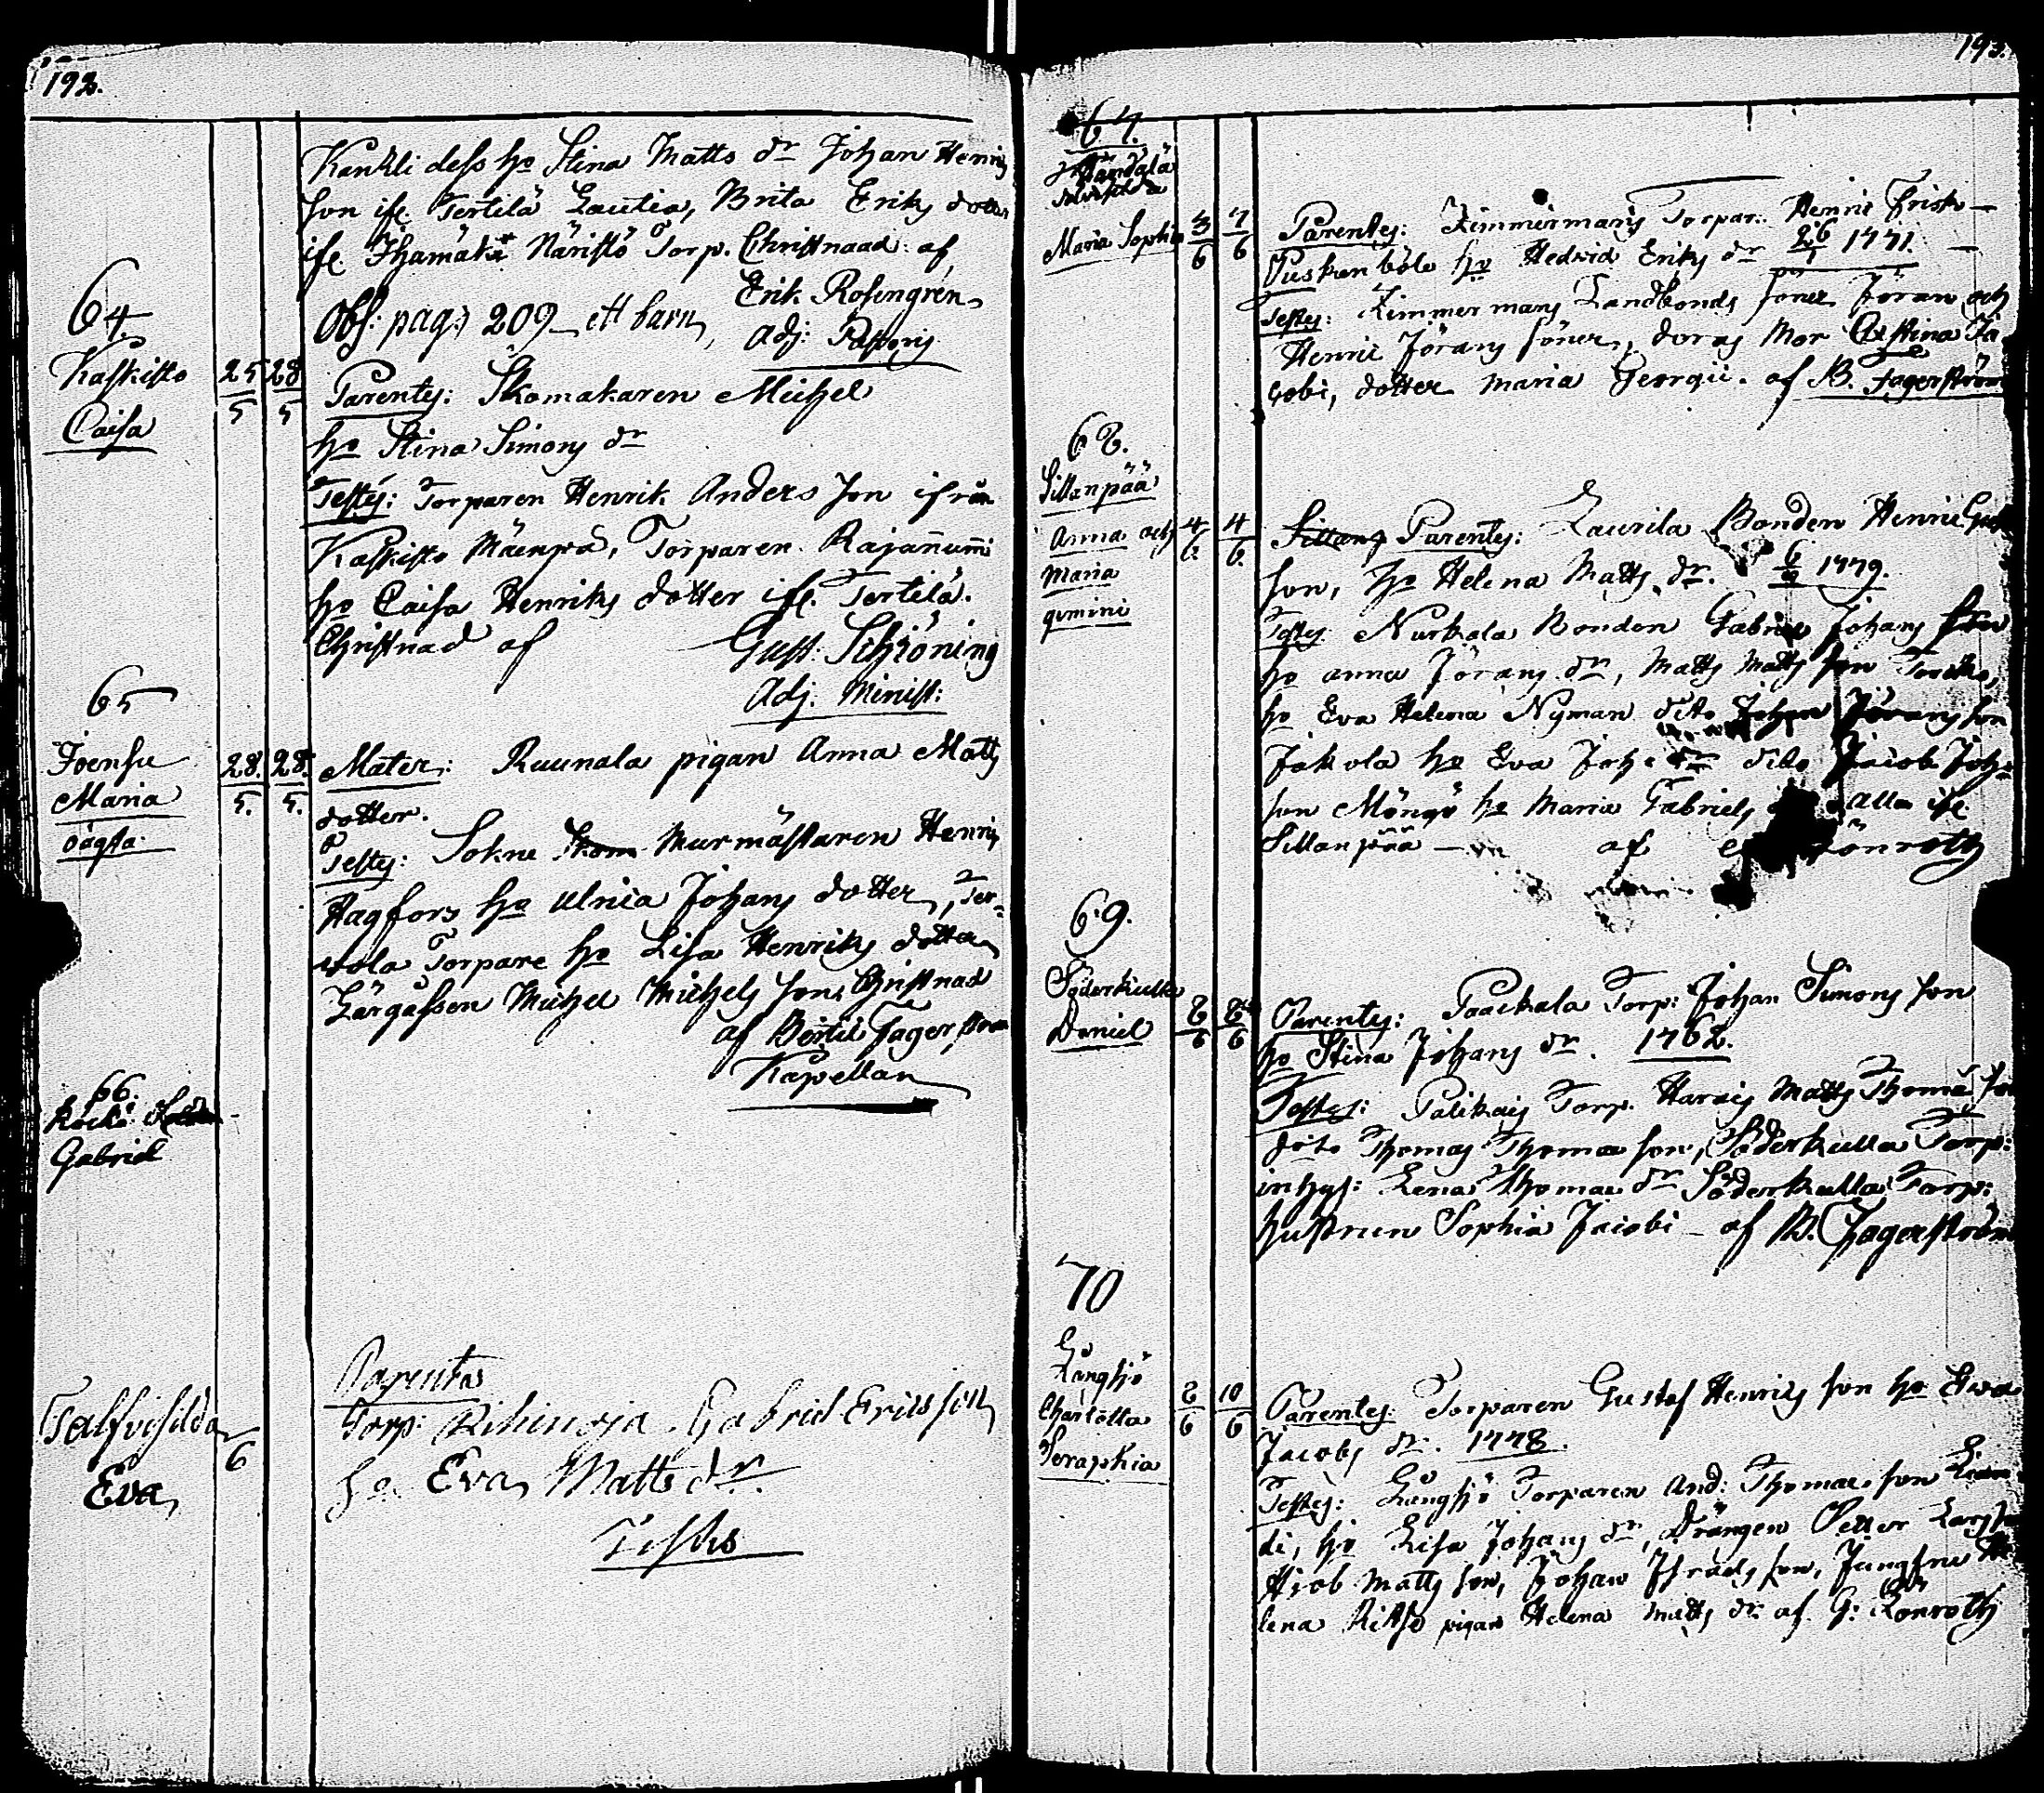 192.
Kankli dess ho Stina Matts dr Johan Henrics
son ifr. Tertilä Lautia, Brita Eriks dotter
ifr. Ihamäki Näristö Torp. Christnad af
Erik Rosengren
Adj: Pastoris
Obs: pag: 209 ett barn
64
Kaskisto
Caisa
25/5 28/5
Parentes: Skomakaren Michel
ho Stina Simons dr
Testes: Torparen Henrik Anders son ifrån
Kaskisto Mäenpä, Torparen Rajanummi
ho Caisa Henriks dotter ifr. Tertilä.
Christnad af Gust: Schröning
Adj. Minist:
65
Joensu
Maria
oägta.
28./5. 28./5.
Mater: Ruunala pigan Anna Matts
dotter.
Testes: Sokne Murmästaren Henric
Hagfors ho Ulrica Johans dotter, Ter-
vola Torpare ho Lisa Henriks dotter
Michel Michels son, Christnad
af Bertil Fagerström
Kapellan
66.
Gabriel
Eva
6
Parentes
Torp: Riihioja Gabriel Ericsson
ho Eva Matts dr.
Testes
193.
67.
Maria Sophia
3/6 7/6
Parentes: Zimmermans Torpar: Henric
Puskanböle ho Hedvid Eriks dr 26/1 1771.
Testes: Zimmermans Landbonds söner Jöran och
Henric Jörans söner, deras Mor Christina Ja-
cobi, dotter Maria Georgii. af B. Fagerström
68.
Sillanpää
Anna och
Maria
gemini
4/6 4/6.
Parentes: Laurila Bonden Henric
son, ho Helena Matts dr. 6/9 1779.
Testes: Nurkala Bonden Gabriel Johans son
ho Anna Jörans dr, Matts Matts son
ho Eva Helena Nyman dito Johan Jörans son
Jakola ho Eva Joh: dr dito Jacob Joh:
son Möngö ho Maria Gabriels alla ifr.
Sillanpää af Lönroth
69.
Söderkulla
Daniel
8/6 8/6
Parentes: Paackala Torp: Johan Simons son
ho Stina Johans dr. 1762.
Testes: Palikais Torp. Matts Thomæ son
dito Thomas Thomæ son, Söderkulla Torp:
inhys: Lena Thomæ dr Söderkulla Torp:
hustrun Sophia Jacobi - af B. Fagerström
70
Långsjö
Charlotta
Seraphia
8/6 10/6
Parentes: Torparen Gustaf Henrics son ho Eva
Jacobs dr. 1778.
Testes: Långsjö Torparen And: Thomæ son
di, ho Lisa Johans dr, Drängen Petter Lars son
Hjob Matts son, Johan Israels son, Jungfru He-
lena pigan Helena Matts dr. af G: Lönroth